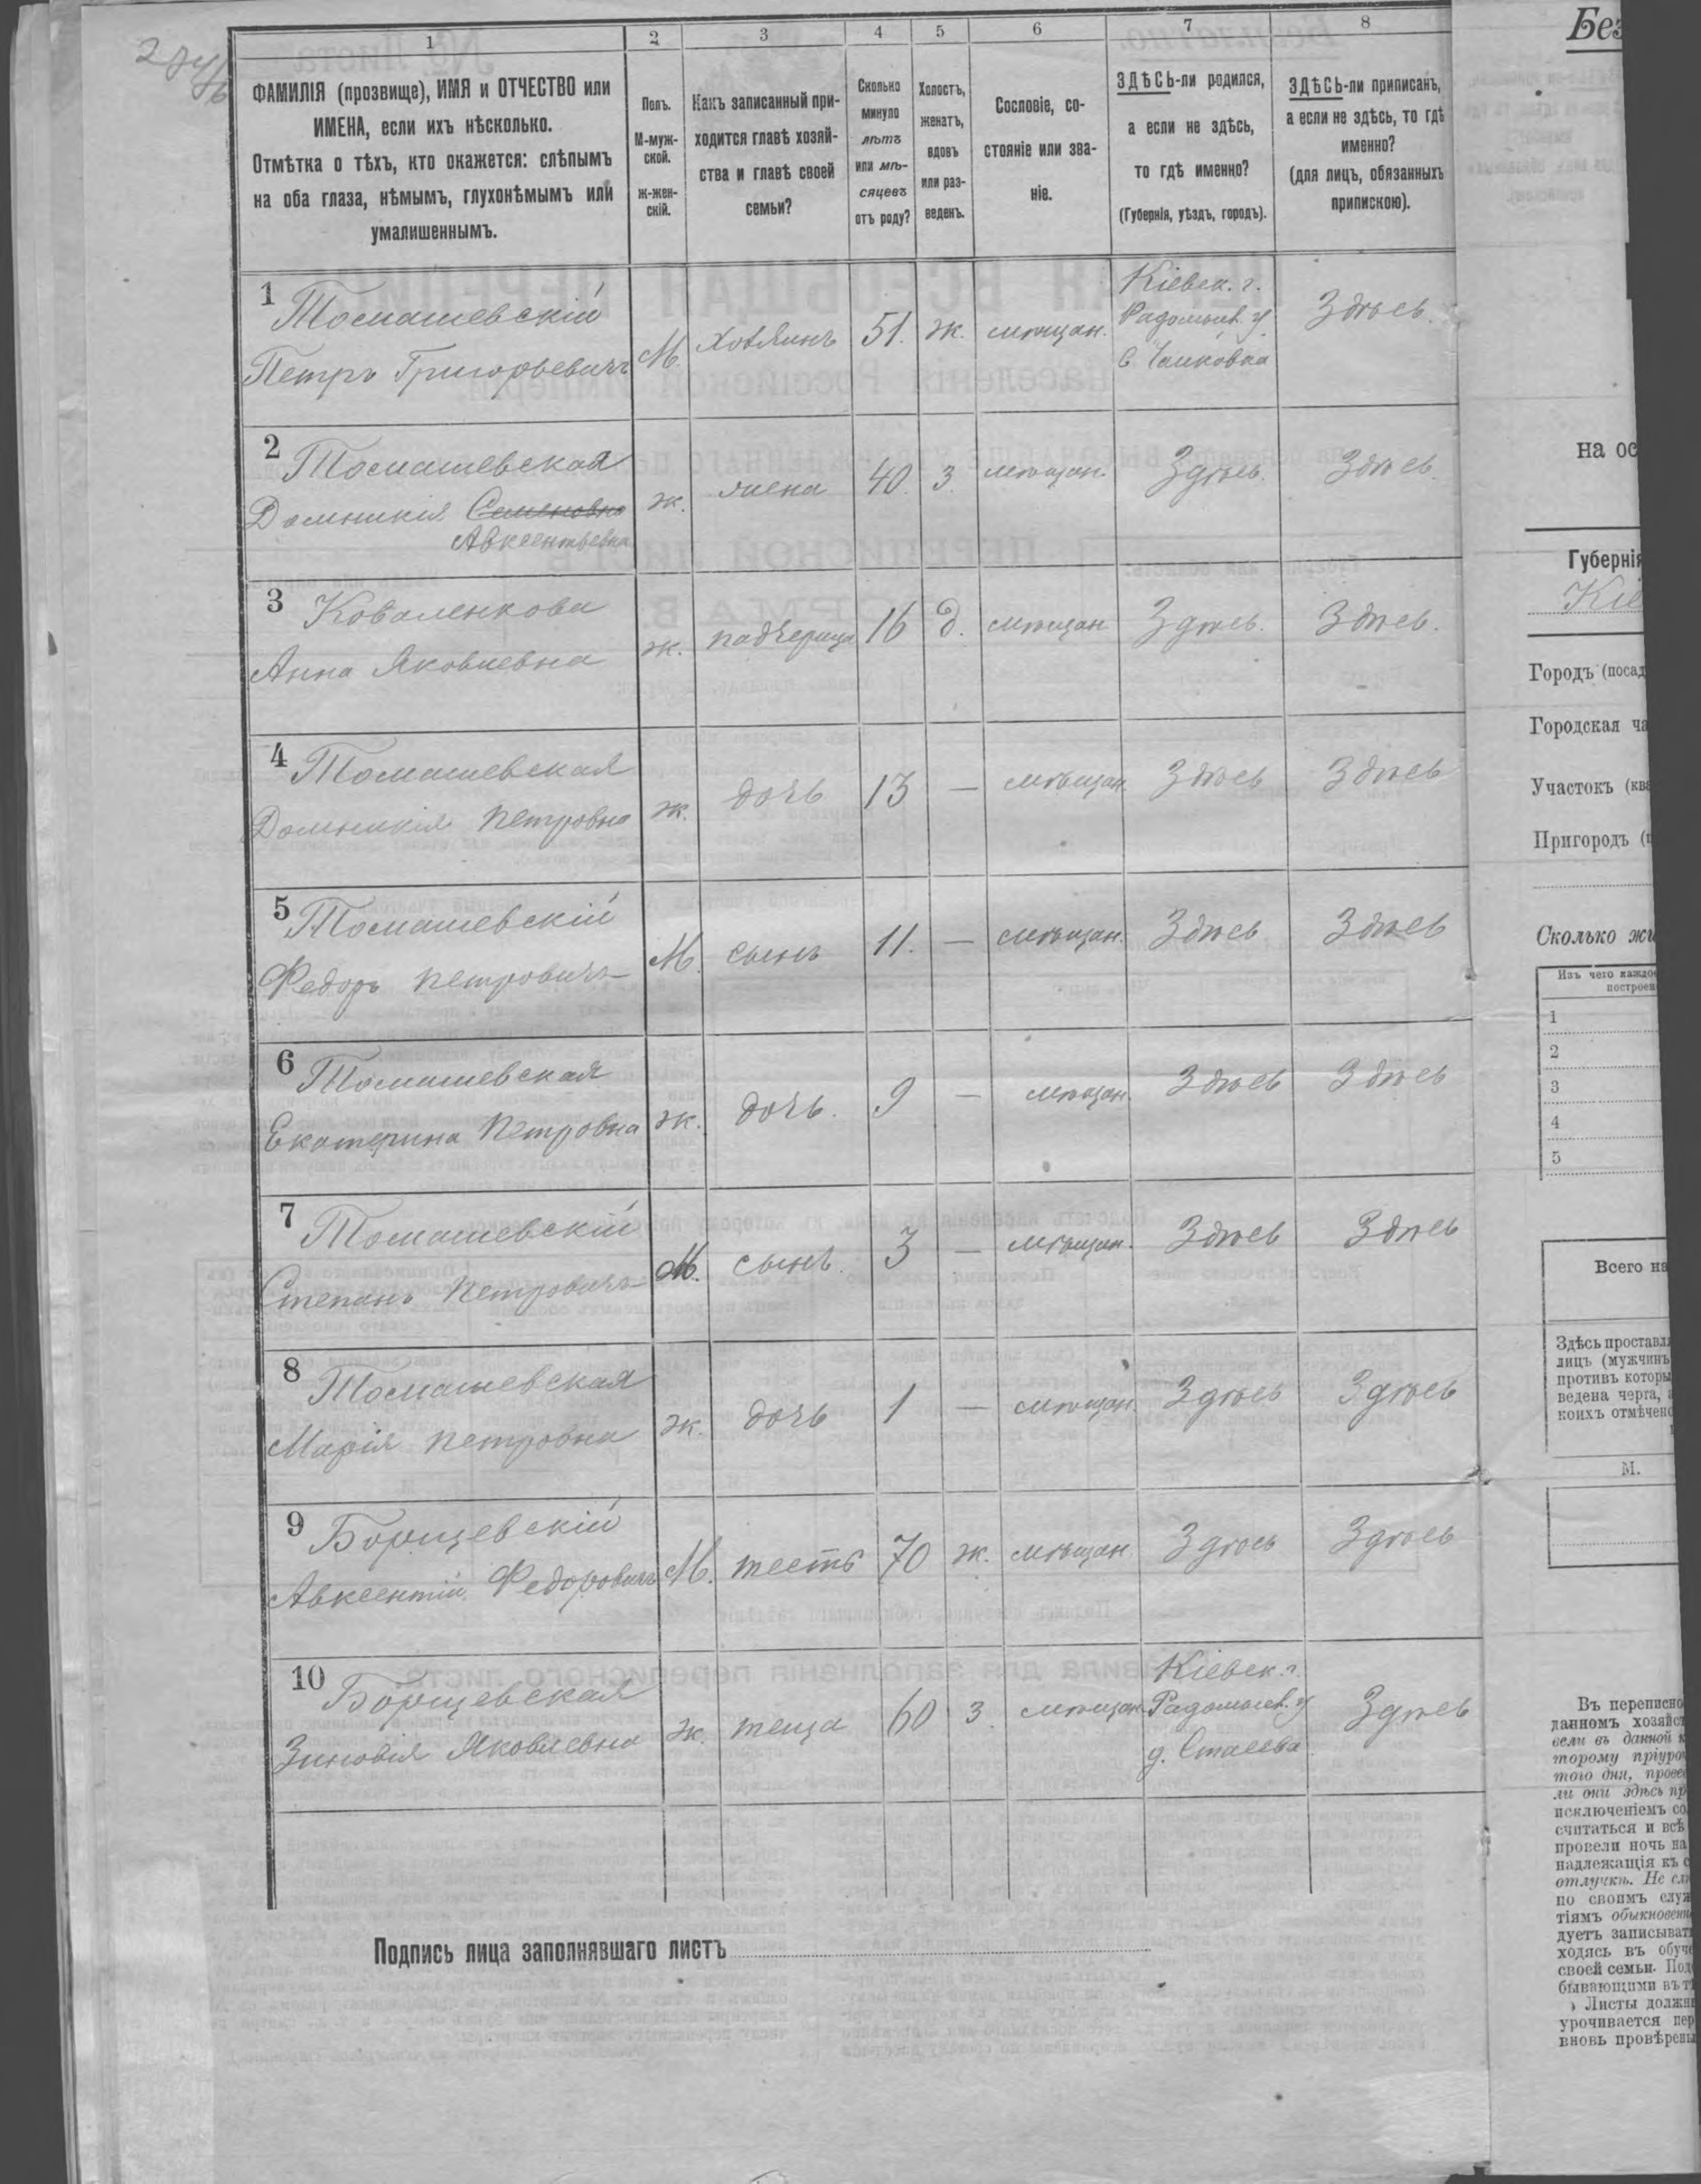 1 2 3 4 5 6 7 8
ФАМИЛІЯ (прозвище), ИМЯ и ОТЧЕСТВО или
ИМЕНА, если ихъ нѣсколько.
Отмѣтка о тѣхъ, кто окажется: слѣпымъ
на оба глаза, нѣмымъ, глухонѣмымъ или
умалишеннымъ.
Полъ.
М-муж-
ской.
ж-жен-
скій.
Какъ записанный при-
ходится главѣ хозяй-
ства и главѣ своей
семьи?
Сколько
минуло
лѣтъ
или мѣ-
сяцевъ
отъ роду?
Холостъ,
женатъ,
вдовъ
или раз-
веденъ.
Сословіе, со-
стояніе или зва-
ніе.
ЗДѢСЬ-ли родился,
а если не здѣсь,
то гдѣ именно?
(Губернія, уѣздъ, городъ).
ЗДѢСЬ-ли приписанъ,
а если не здѣсь, то гдѣ
именно?
(для лицъ, обязанныхъ
припискою).
1 Томашевскій
Петръ Григорьевичъ
М. хозяинъ 51. ж. мѣщан.
Кіевск. г.
Радомысл. у.
с.
Здѣсь.
2 Томашевская
Домникія Семеновна
Авксентьевна
ж. жена 40. З. мѣщан. Здѣсь. Здѣсь.
3 Коваленкова
Анна Яковлевна
ж. падчерица 16 д. мѣщан. Здѣсь. Здѣсь.
4 Томашевская
Домникія Петровна
ж. дочь 13 — мѣщан. Здѣсь Здѣсь
5 Томашевскій
Федоръ Петровичъ
М. сынъ 11. — мѣщан. Здѣсь Здѣсь
6 Томашевская
Екатерина Петровна
ж. дочь. 9 — мѣщан. Здѣсь Здѣсь
7 Томашевскій
Степанъ Петровичъ
М. сынъ. 3 — мѣщан. Здѣсь Здѣсь
8 Томашевская
Марія Петровна
ж. дочь 1 — мѣщан. Здѣсь Здѣсь
9 Борщевскій
Авксентій Федоровичъ
М. тесть 70 ж. мѣщан. Здѣсь Здѣсь
10 Борщевская
Зиновія Яковлевна
ж. теща 60 З. мѣщан.
Кіевск. г.
Радомысл. у
д.
Здѣсь
Подпись лица заполнявшаго листъ
Без
на ос
Губернія
Кіе
Городъ (посад
Городская ча
Участокъ (ква
Пригородъ (
Сколько жи
Изъ чего каждо
построен
1
2
3
4
5
Всего на
Здѣсь проставл
лицъ (мужчинъ
противъ которы
ведена черта,
коихъ отмѣчено
М.
Въ переписно
данномъ хозяйст
если въ данной к
торому пріуро
того дня, прове
ли они здѣсь пр
исключеніемъ со
считаться и всѣ
провели ночь на
надлежащія къ с
отлучкѣ. Не сл
по своимъ служ
тіямъ обыкновенн
дуетъ записыват
ходясь въ обуче
своей семьи. Под
бывающими въ т
Листы должн
урочивается пер
вновь провѣрены